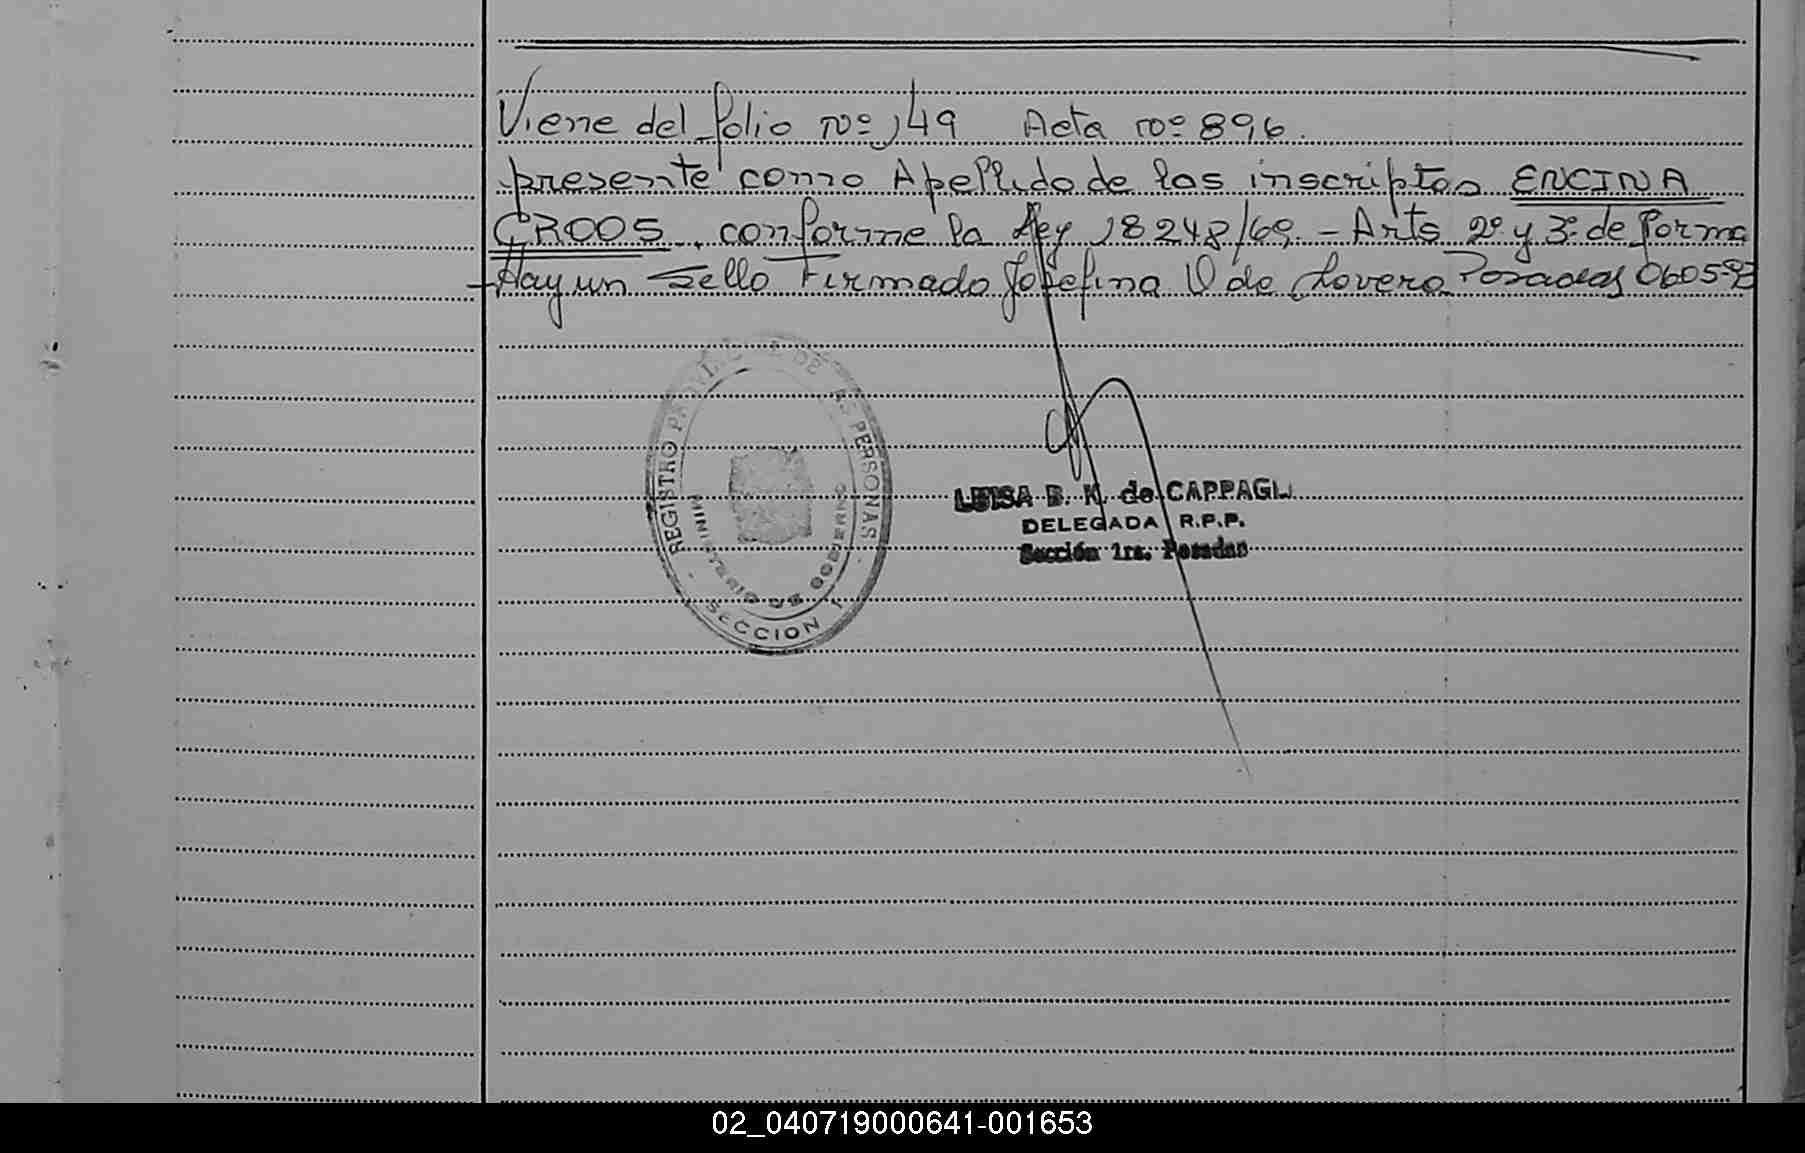 Viene del folio nº 149 Acta nº 896.
presente como Apellido de los inscriptos ENCINA
CROOS, conforme la Ley 18248/69.- Arts 2º y 3º de forma
-Hay un Sello Firmado Josefina V de Lovera Posadas 06059
REGISTRO PROVINCIAL DE LAS PERSONAS
MINISTERIO DE GOBIERNO
- SECCION 1 -
LUISA B. K. de CAPPAGLI
DELEGADA R.P.P.
Sección 1ra. Posadas
02_040719000641-001653